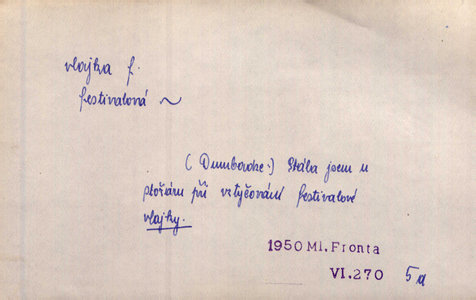 vlajka f.
festivalová ~
Stála jsem u
stožáru při vztyčování festivalové
vlajky.
1950 Ml. Fronta
VI.270 5a